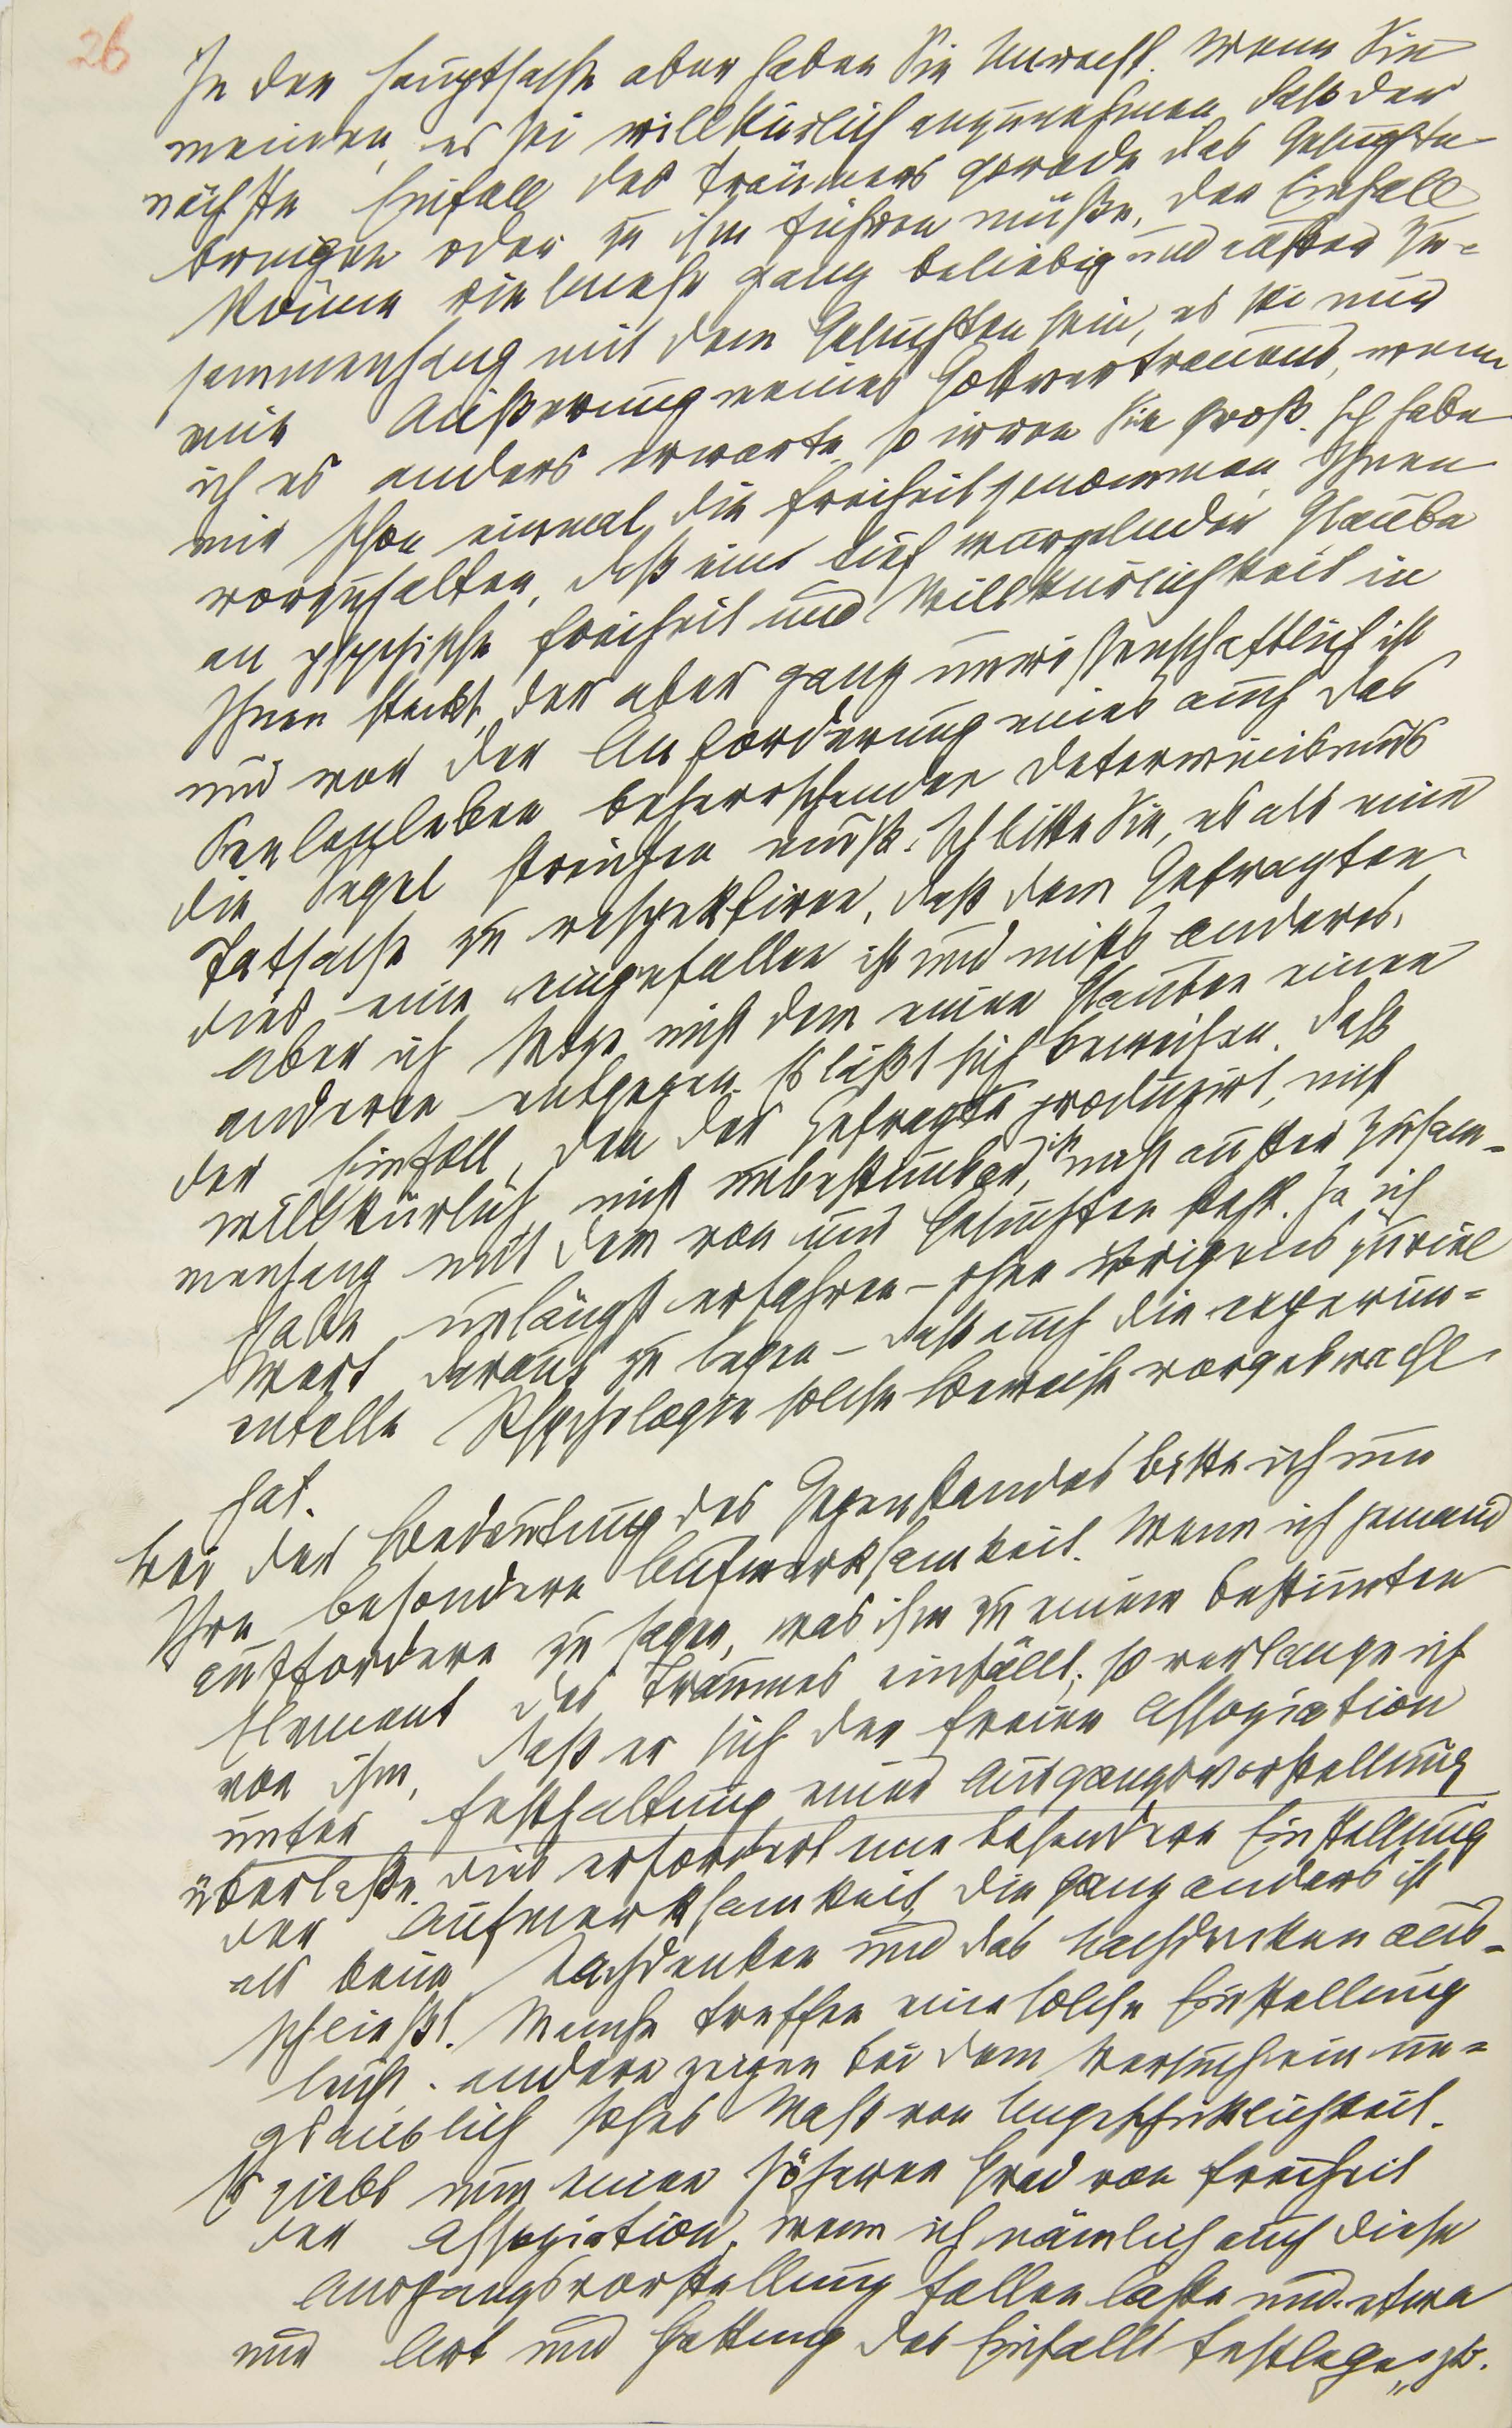 26
In der Hauptsache aber haben Sie Unrecht. Wenn Sie
meinen, es sei willkürlich anzunehmen, daß der
nächste Einfall des Träumers gerade das Gesuchte
bringen oder zu ihm führen müße, der Einfall
könne vielmehr ganz beliebig und außer Zu-
sammenhang mit dem Gesuchten sein, es sei nur
eine Äußerung meines Gottvertrauens, wenn
ich es anders erwarte, so irren Sie groß. Ich habe
mir schon einmal die Freiheit genommen, Ihnen
vorzuhalten, daß ein tief wurzelnder Glaube
an psychische Freiheit und Willkürlichkeit in
Ihnen steckt, der aber ganz unwissenschaftlich ist
und vor der Anforderung eines auch das
Seelenleben beherrschenden Determinismus
die Segel streichen muß. Ich bitte Sie, es als eine
Tatsache zu respektiren, daß dem Gefragten
dies eine eingefallen ist und nichts anderes.
Aber ich setze nicht dem einen Glauben einen
anderen entgegen. Es läßt sich beweisen, daß
der Einfall, den der Gefragte produzirt, nicht
willkürlich, nicht unbestimbar ist, nicht außer Zusam-
menhang mit dem von uns Gesuchten steht. Ja ich
habe unlängst erfahren – ohne übrigens zuviel
Wert daraus zu legen – daß auch die experim-
entelle Psychologie solche Beweise vorgebracht
hat.
Bei der Bedeutung des Gegenstandes bitte ich um
Ihre besondere Aufmerksamkeit. Wenn ich jemand
auffordere zu sagen, was ihm zu einem bestimten
Element des Traumes einfällt, so verlange ich
von ihm, daß er sich der freien Assoziation
unter Festhaltung einer Ausgangsvorstellung
überlaße. Dies erfordert eine besondere Einstellung
der Aufmerksamkeit, die ganz anders ist
als beim Nachdenken und das Nachdenken aus-
schließt. Manche treffen eine solche Einstellung
leicht, andere zeigen bei dem Versuch ein un-
glaublich hohes Maß von Ungeschicklichkeit.
Es giebt nun einen höheren Grad von Freiheit
der Assoziation, wenn ich nämlich auch diese
Ausgangsvorstellung fallen laße und etwa
nur Art und Gattung des Einfalls festlege, zb.